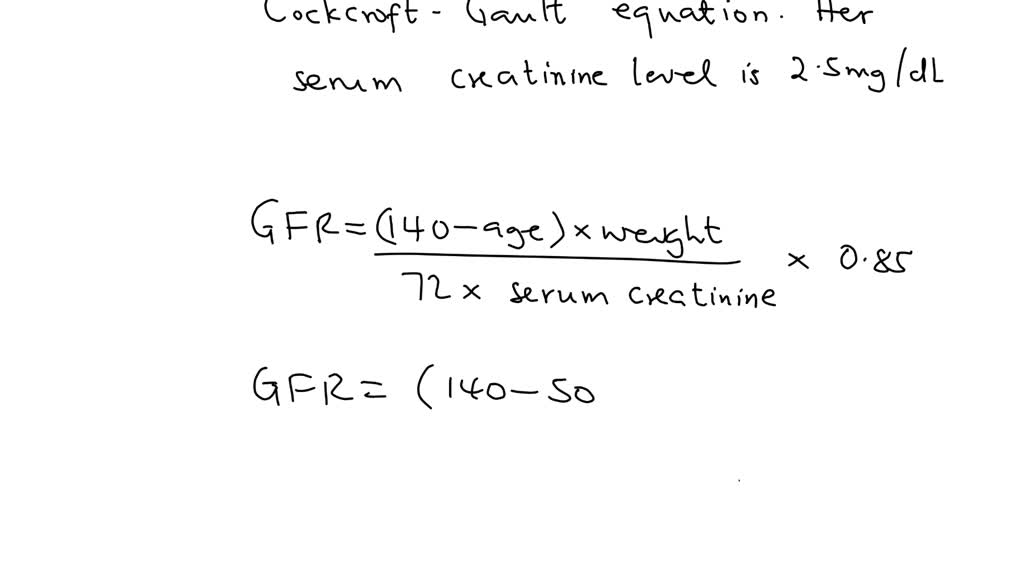 Cockcroft - Gault equation. Her
serum creatinine level is 2.5mg/dL
GFR = (140-age) × weight
72 × serum creatinine × 0.85
GFR = (140-50